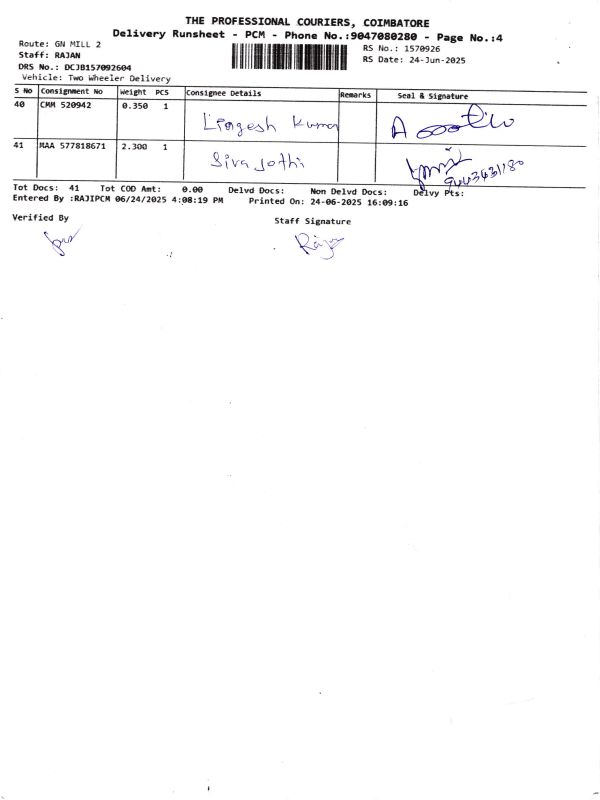 THE PROFESSIONAL COURIERS, COIMBATORE
Delivery Runsheet - PCM - Phone No.:9047080280 - Page No.:4
Route: GN MILL 2 RS No.: 1570926
Staff: RAJAN RS Date: 24-Jun-2025
DRS No.: DCJB157092604
Vehicle: Two Wheeler Delivery
S No Consignment No Weight PCS Consignee Details Remarks Seal & Signature
40 CMM 520942 0.350 1 Lingesh Kumar
41 MAA 577818671 2.300 1 Siva Jothi 9443631180
Tot Docs: 41 Tot COD Amt: 0.00 Delvd Docs: Non Delvd Docs: Delvy Pts:
Entered By :RAJIPCM 06/24/2025 4:08:19 PM Printed On: 24-06-2025 16:09:16
Verified By Staff Signature
Rajan